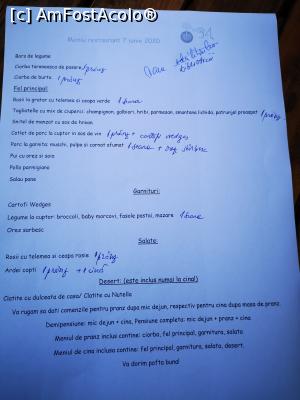 [C] AmFostAcolo®
Meniu restaurant 7 iunie 2020
31
Bors de legume
Ciorba taraneasca de pasare 1 prânz
Ciorba de burta 1 prânz
Fel principal:
Rosii la gratar cu telemea si ceapa verde 1 cina
Tagliatelle cu mix de ciuperci: champignon, galbiori, hribi, parmesan, smantana lichida, patrunjel proaspat 1 prânz
Snitel de manzat cu sos de hrean
Cotlet de porc la cuptor in sos de vin 1 prânz + cartofi wedges
Porc la garnita: muschi, pulpe si carnat afumat 1 cina + orez sârbesc
Pui cu orez si soia
Pollo parmigiano
Salau pane
Garnituri:
Cartofi Wedges
Legume la cuptor: broccoli, baby morcovi, fasole pastai, mazare 1 cina
Orez sarbesc
Salate:
Rosii cu telemea si ceapa rosie 1 prânz
Ardei copti 1 prânz + 1 cină
Desert: (este inclus numai la cina)
Clatite cu dulceata de casa/ Clatite cu Nutella
Va rugam sa dati comenzile pentru pranz dupa mic dejun, respectiv pentru cina dupa masa de pranz.
Demipensiune: mic dejun + cina, Pensiune completa: mic dejun + pranz + cina
Meniul de pranz inclus contine: ciorba, fel principal, garnitura, salata
Meniul de cina inclusa contine: fel principal, garnitura, salata, desert.
Va dorim pofta buna!